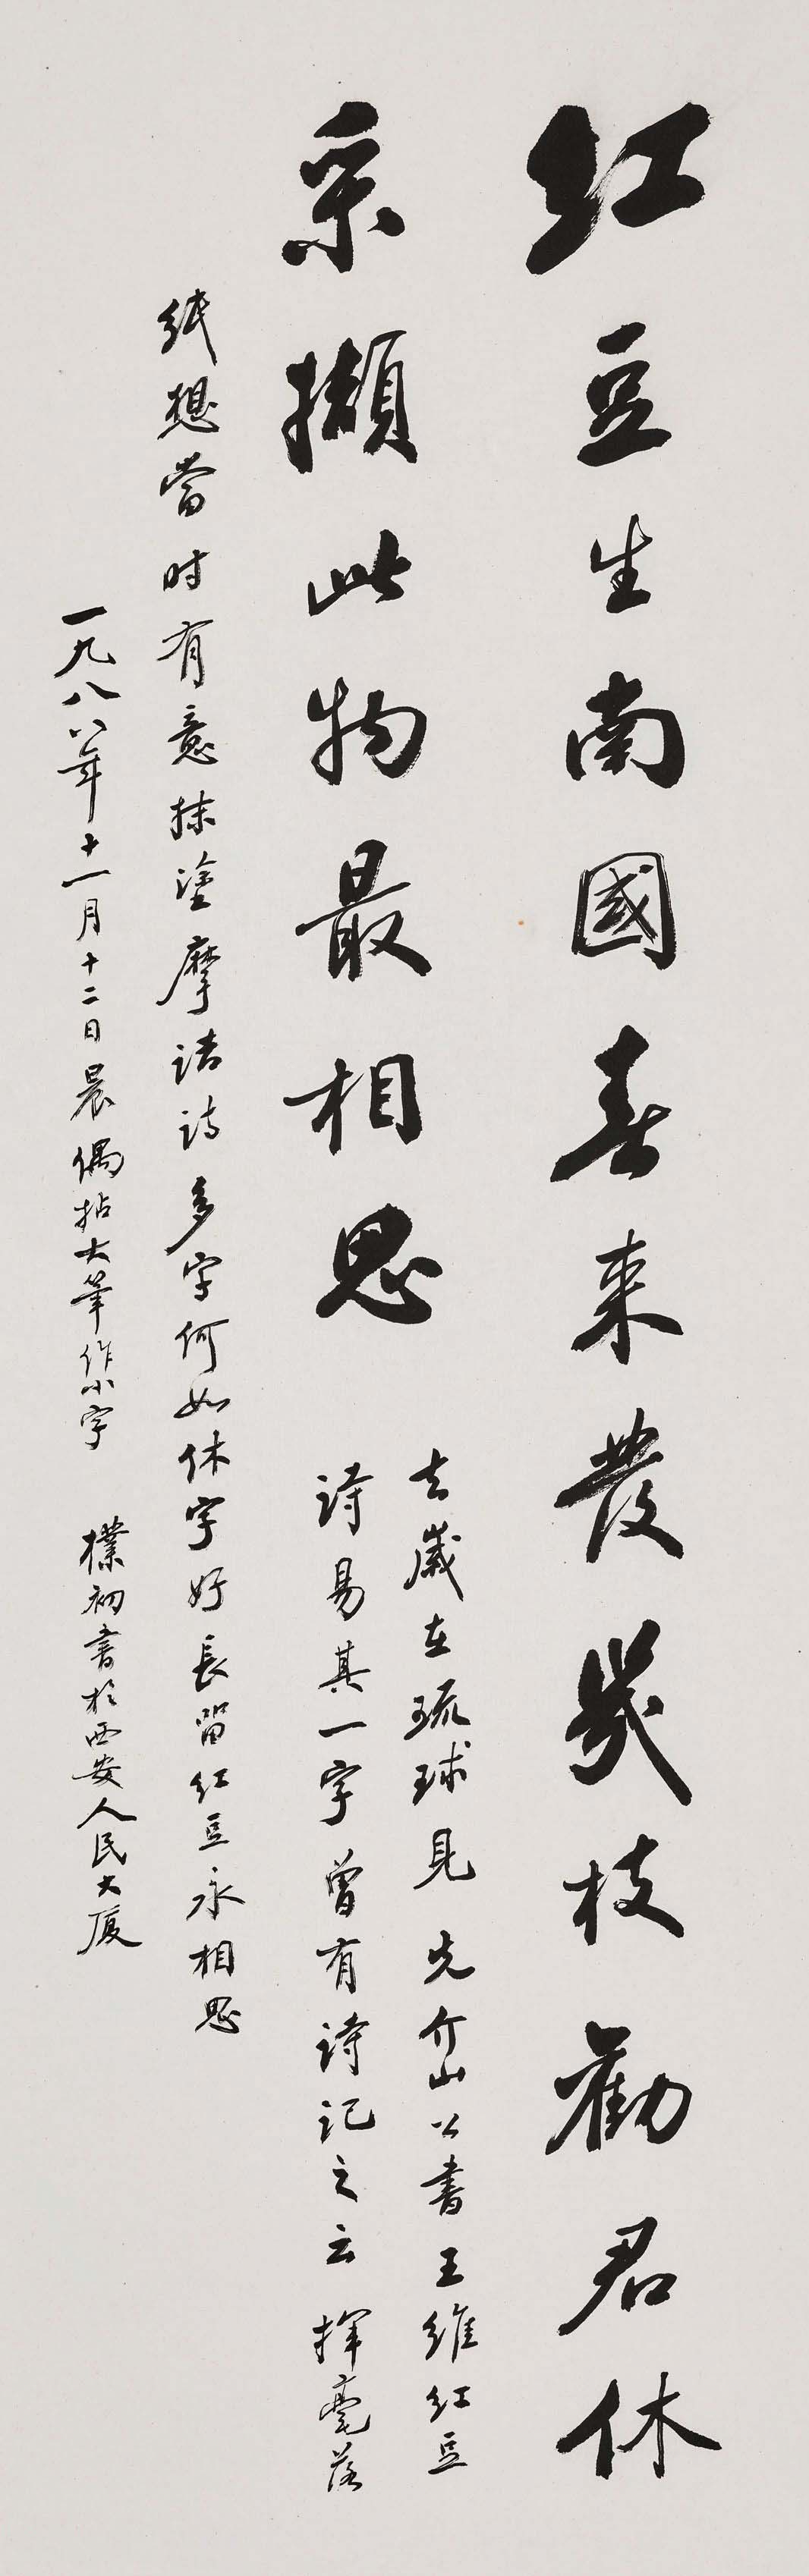 紅豆生南國春来發幾枝勸君休
采擷此物最相思
去歲在琉球見 先介山公書王維紅豆
詩易其一字曾有詩記之云揮毫落
紙想當时有意抹塗摩詰詩多字何如休字好長留紅豆永相思
一九八八年十一月十二日晨偶拈大筆作小字 樸初書於西安人民大厦